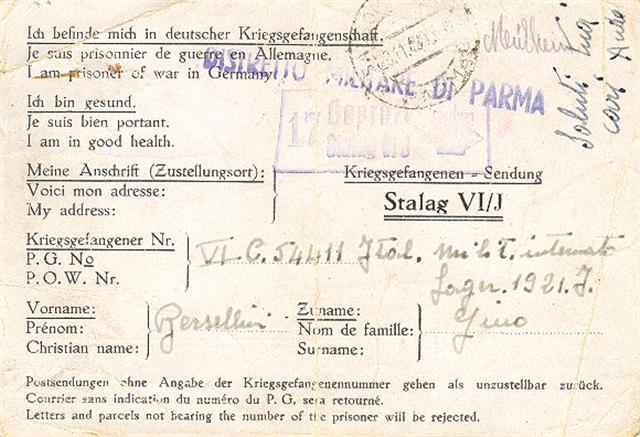 Ich befinde mich in deutscher Kriegsgefangenschaft.
Je suis prisonnier de guerre en Allemagne.
I am prisoner of war in Germany.
Mülheim
Saluti
cari
DISTRETTO MILITARE DI PARMA
Ich bin gesund.
Je suis bien portant.
I am in good health.
17
Geprüft
Stalag VI
Meine Anschrift (Zustellungsort):
Voici mon adresse:
My address:
Kriegsgefangenen - Sendung
Stalag VI/J
Kriegsgefangener Nr.
P. G. No
P. O. W. Nr.
VI C. 54411 Ital. milit. internato
Lager. 1921. J.
Vorname:
Prénom:
Christian name:
Bersellini
Zuname:
Nom de famille:
Surname:
Gino
Postsendungen ohne Angabe der Kriegsgefangenennummer gehen als unzustellbar zurück.
Courrier sans indication du numéro du P. G. sera retourné.
Letters and parcels not bearing the number of the prisoner will be rejected.